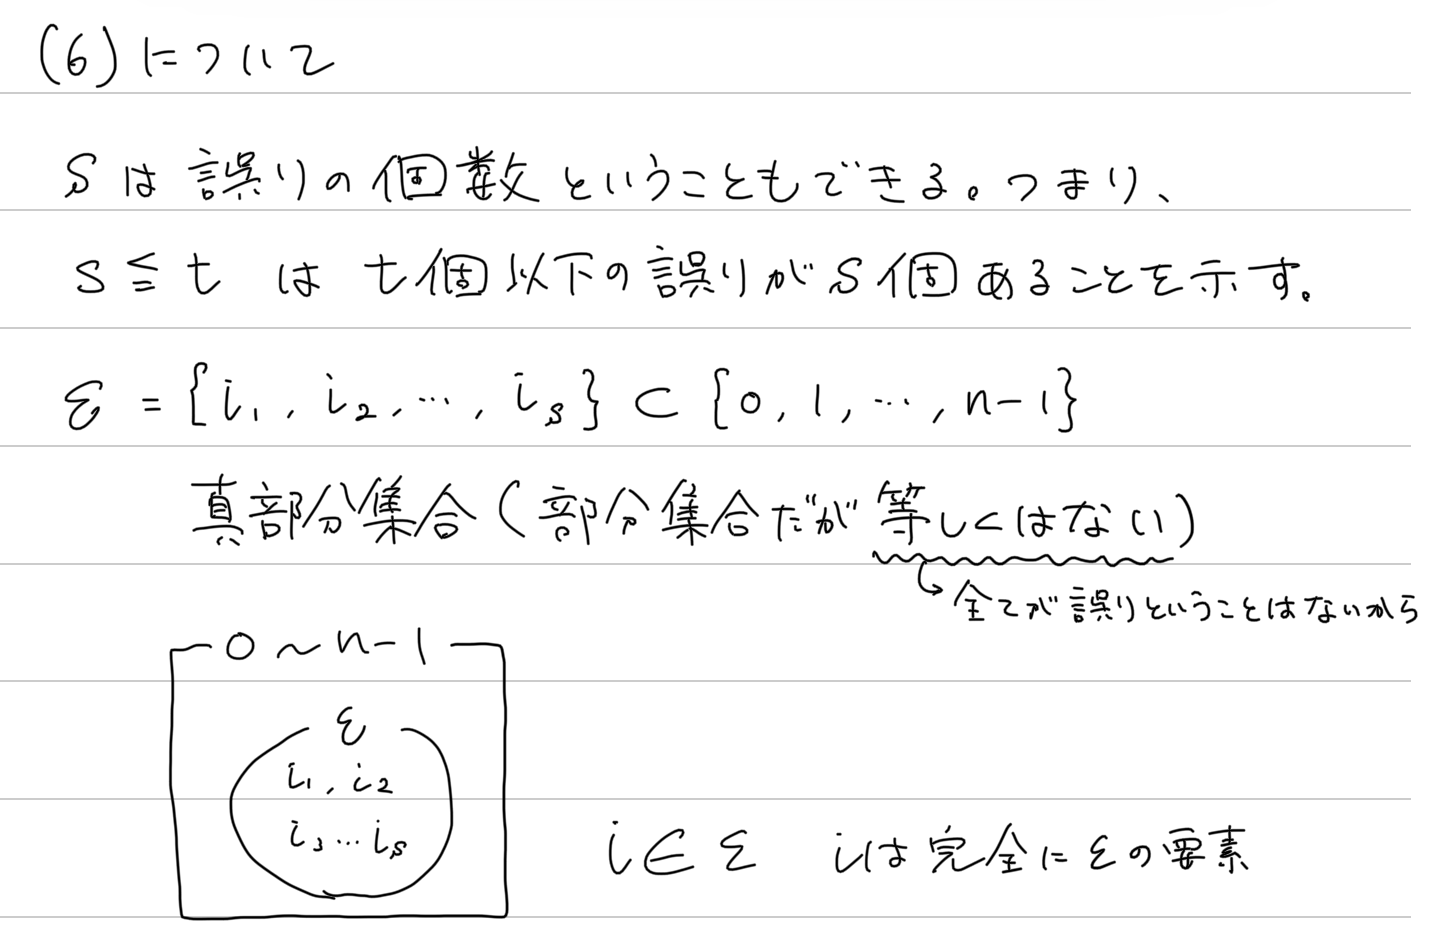 (6)について
Sは誤りの個数ということもできる。つまり、
s ≦ t は t個以下の誤りがs個あることを示す。
ε = {i₁, i₂, …, iₛ} ⊂ {0, 1, …, n-1}
真部分集合(部分集合だが等しくはない)
↳全てが誤りということはないから
0 ~ n-1
ε
i₁, i₂
i₃ … iₛ
i ∈ ε iは完全にεの要素